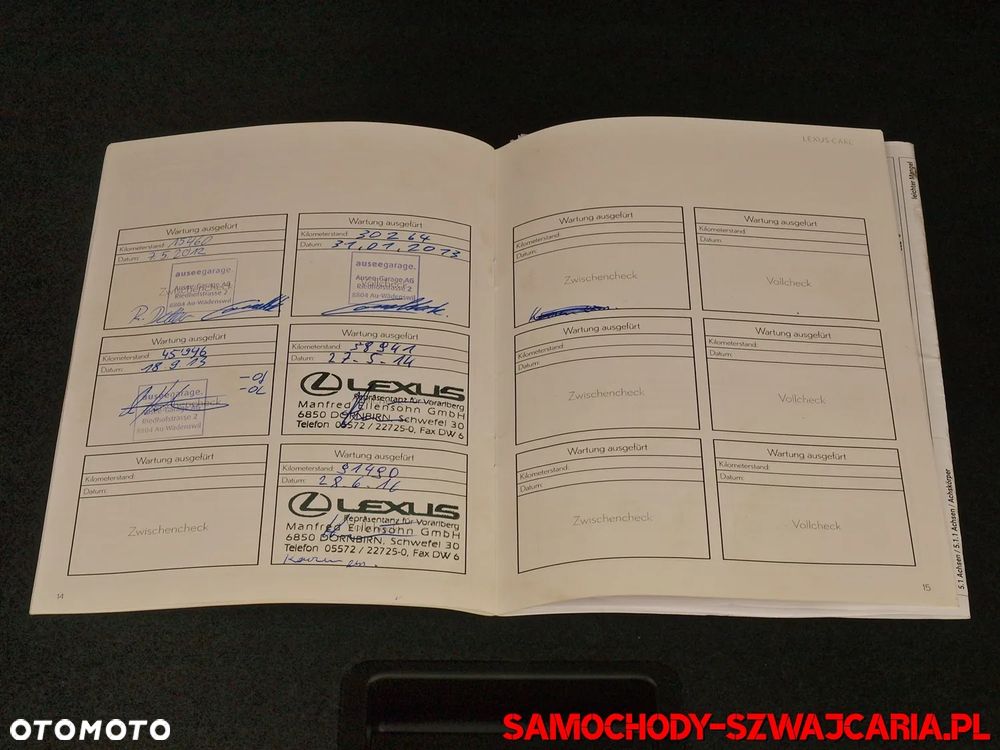 LEXUS CARE
Wartung ausgefürt
Kilometerstand: 15460
Datum: 7.5.2012
Zwischencheck
auseegarage.
Ausee-Garage AG
Riedhofstrasse 2
8804 Au-Wädenswil
Wartung ausgefürt
Kilometerstand: 30264
Datum: 31.01.2013
Vollcheck
auseegarage.
Ausee-Garage AG
Riedhofstrasse 2
8804 Au-Wädenswil
Wartung ausgefürt
Kilometerstand: 45'946
Datum: 18 9 13
auseegarage.
Riedhofstrasse 2
8804 Au-Wädenswil
Wartung ausgefürt
Kilometerstand:
Datum: 27-5-14
LEXUS
Repräsentanz für Vorarlberg
Manfred Ellensohn GmbH
6850 DORNBIRN, Schwefel 30
Telefon 05572 / 22725-0, Fax DW 6
Wartung ausgefürt
Kilometerstand:
Datum:
Zwischencheck
Wartung ausgefürt
Kilometerstand: 91490
Datum: 28.6.16
LEXUS
Repräsentanz für Vorarlberg
Manfred Ellensohn GmbH
6850 DORNBIRN, Schwefel 30
Telefon 05572 / 22725-0, Fax DW 6
14
Wartung ausgefürt
Kilometerstand:
Datum:
Zwischencheck
Wartung ausgefürt
Kilometerstand:
Datum:
Vollcheck
Wartung ausgefürt
Kilometerstand:
Datum:
Zwischencheck
Wartung ausgefürt
Kilometerstand:
Datum:
Vollcheck
Wartung ausgefürt
Kilometerstand:
Datum:
Zwischencheck
Wartung ausgefürt
Kilometerstand:
Datum:
Vollcheck
15
leichter Mangel
5.1 Achsen / 5.1.1 Achsen / Achskörper
OTOMOTO
SAMOCHODY-SZWAJCARIA.PL